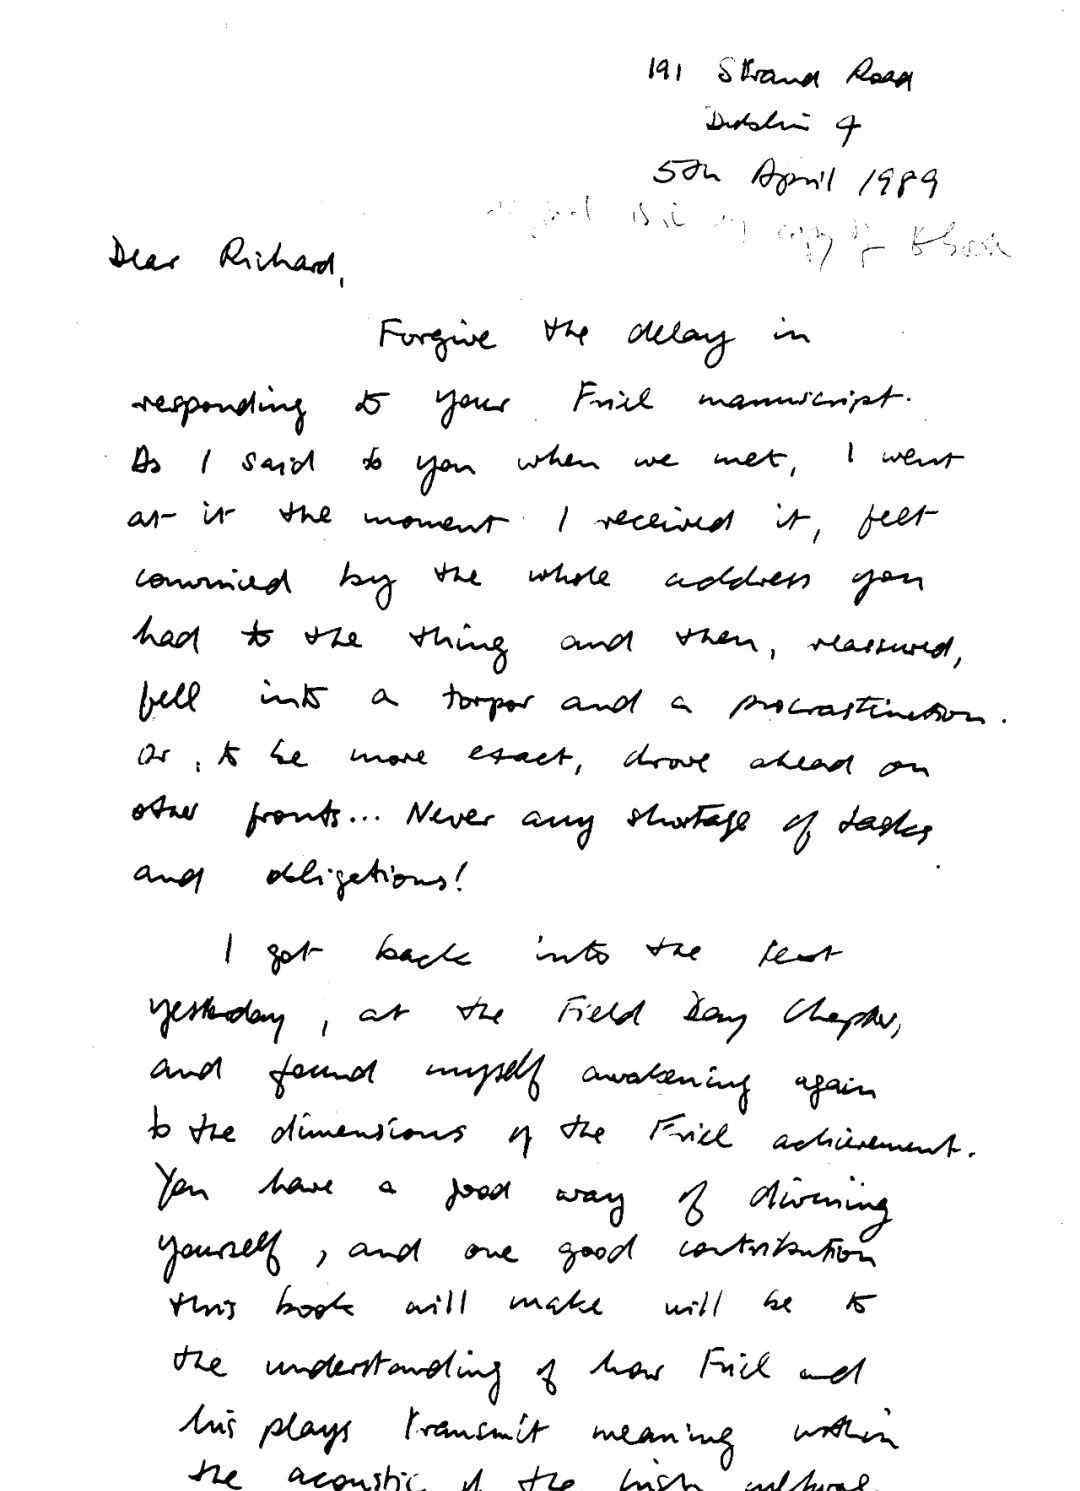 191 Strand Road
Dublin 4
5th April 1989
is in my copy of
Dear Richard,
Forgive the delay in
responding to your Friel manuscript.
As I said to you when we met, I went
at it the moment I received it, felt
convinced by the whole address you
had to the thing and then, reassured,
fell into a torpor and a procrastination.
Or, to be more exact, drove ahead on
other fronts... Never any shortage of tasks
and obligations!
I got back into the text
yesterday, at the Field Day Chapter,
and found myself awakening again
to the dimensions of the Friel achievement.
You have a good way of divining
yourself, and one good contribution
this book will make will be to
the understanding of how Friel and
his plays transmit meaning within
the acoustic of the Irish cultural